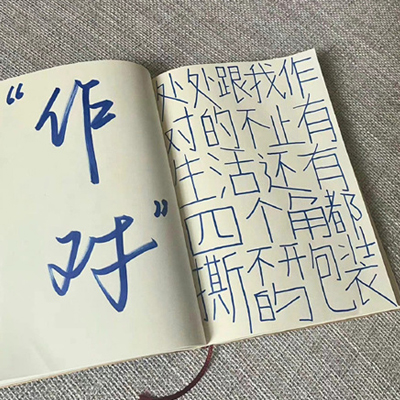 “作
对”
处处跟我作
对的不止有
生活还有
四个角都
撕不开的包装